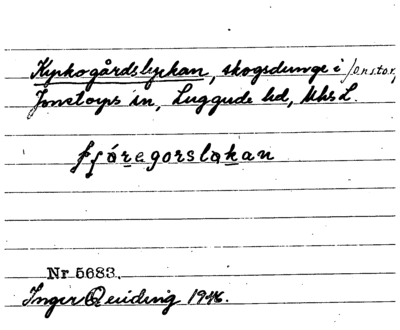 Kyrkogårdslyckan, skogsdunge i Jonstorp
Jonstorps sn, Luggude hd, Mhs L.
ɕǿregorslɑkan
Nr 5683.
Inger Reuding 1946.